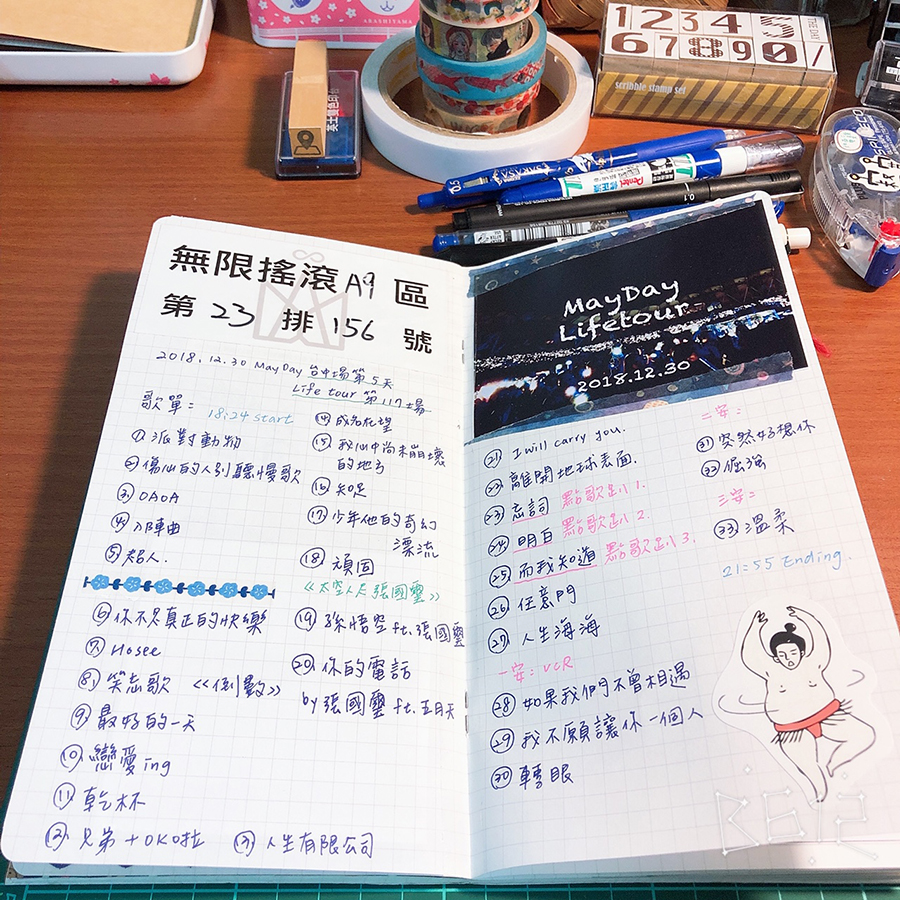 ARASHIYAMA
1 2 3 4 5
6 7 8 9 0 /
scribble stamp set
0.5
0.1
無限搖滾A9區
第23排156號
2018.12.30 MayDay 台中場第5天
Life tour 第117場
歌單：
18:24 start
① 派對動物
② 傷心的人別聽慢歌
③ OAOA
④ 入陣曲
⑤ 超人.
⑥ 你不是真正的快樂
⑦ Hosee
⑧ 笑忘歌 《倒數》
⑨ 最好的一天
⑩ 戀愛ing
⑪ 乾杯
⑫ 兄弟＋OKO拉
⑬ 人生有限公司
⑭ 成名在望
⑮ 我心中尚未崩壞
的地方
⑯ 知足
⑰ 少年他的奇幻
漂流
⑱ 頑固
《太空人是張國璽》
⑲ 孫悟空 ft.張國璽
⑳ 你的電話
by 張國璽 ft. 五月天
MayDay
Lifetour
2018.12.30
㉑ I will carry you.
㉒ 離開地球表面.
㉓ 忘詞 點歌趴1.
㉔ 明白 點歌趴2.
㉕ 而我知道 點歌趴3.
㉖ 任意門
㉗ 人生海海
一安：VCR
㉘ 如果我們不曾相遇
㉙ 我不願讓你一個人
㉚ 轉眼
二安：
㉛ 突然好想你
㉜ 倔強
三安：
㉝ 溫柔
21:55 Ending.